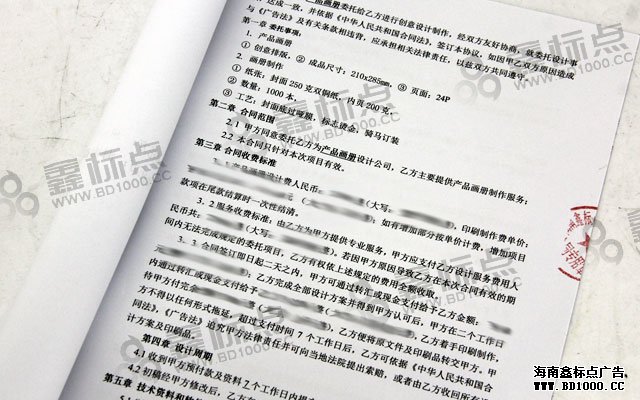 达成一致，并依据《中华人民共和国合同法》
产品画册委托给乙方进行创意设计制作，经双方友好协商，就委托设计事
与《广告法》及有关条款相违背，应承担相关法律责任，以兹双方共同遵守。
签订本协议，如因甲乙双方原因造成
第一章 委托事项：
1. 产品画册
① 创意排版，② 成品尺寸：210x285mm ③ 页面：24P
2. 画册制作
① 纸张：封面250克双铜纸，内页200克，
② 数量：1000本，
③ 工艺：封面底过哑膜，标志烫金，骑马订装
第二章 合同范围
2.1 甲方同意委托乙方为产品画册设计公司，乙方主要提供产品画册制作服务；
2.2 本合同只针对本次项目有效。
第三章 合同收费标准
产品画册设计费人民币：
（大写：
），印刷制作费单价：
（大写：
）；如有增加部分按单价计费，增加项目
款项在尾款结算时一次性结清。
3.2 服务收费标准：由乙方为甲方提供专业服务，甲方应支付乙方设计服务费用人
民币共：
（大写：
）。若因甲方原因导致乙方在本合同有效的期
间内无法完成规定的委托项目，乙方有权依上述规定的费用全额收取。
3.3 合同签订即日起二天之内，甲方可通过转汇或现金支付给予乙方金额：
元
乙方完成全部设计方案并得到甲方认可后，甲方在二个工作日
内通过转汇或现金支付给予
，乙方着手印刷制作，
待甲方付完全
乙方便将原文件及印刷品转交甲方。甲
方不得以任何形式拖延，超过支付时间7个工作日后，乙方可依据《中华人民共和国合
同法》，《广告法》追究甲方法律责任并可向当地法院提出索赔，或者由乙方收回所有
计方案及印刷品。
第四章 设计周期
4.1 收到甲方预付款及资料7个工作日内
4.2 初稿经甲方修改后，乙方在
第五章 技术资料和
鑫标点
WWW.BD1000.CC
海南鑫标点广告
WWW.BD1000.CC